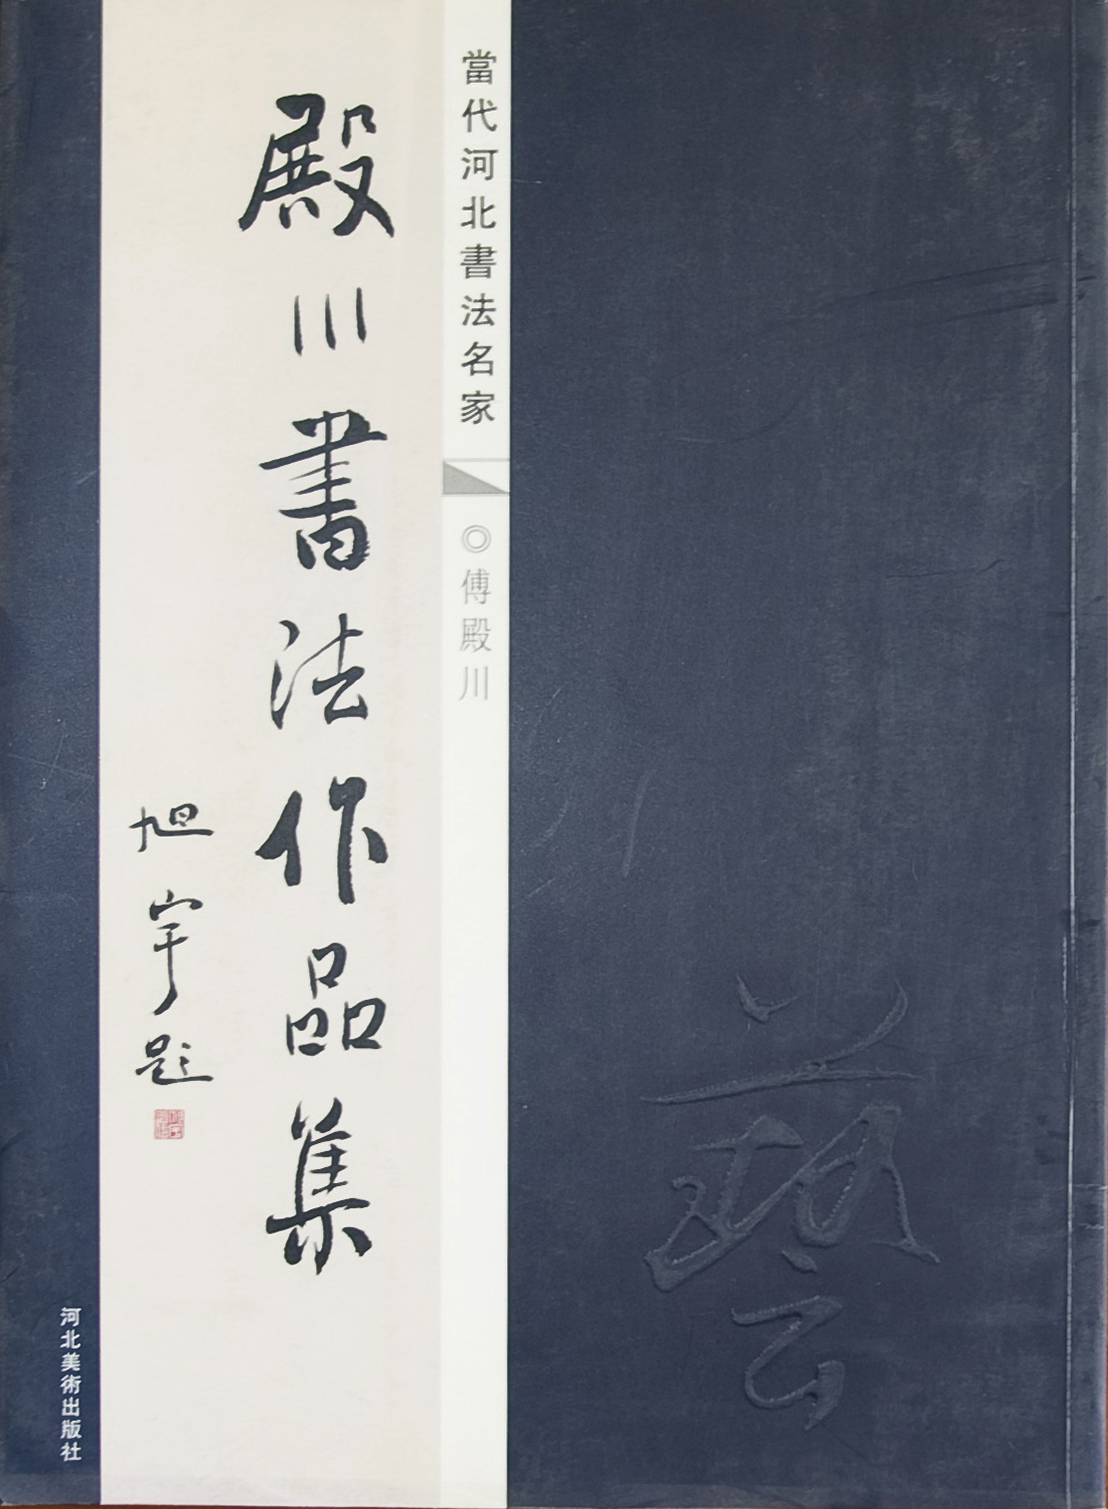 當代河北書法名家
◎傅殿川
殿川書法作品集
旭宇題
河北美術出版社
藝